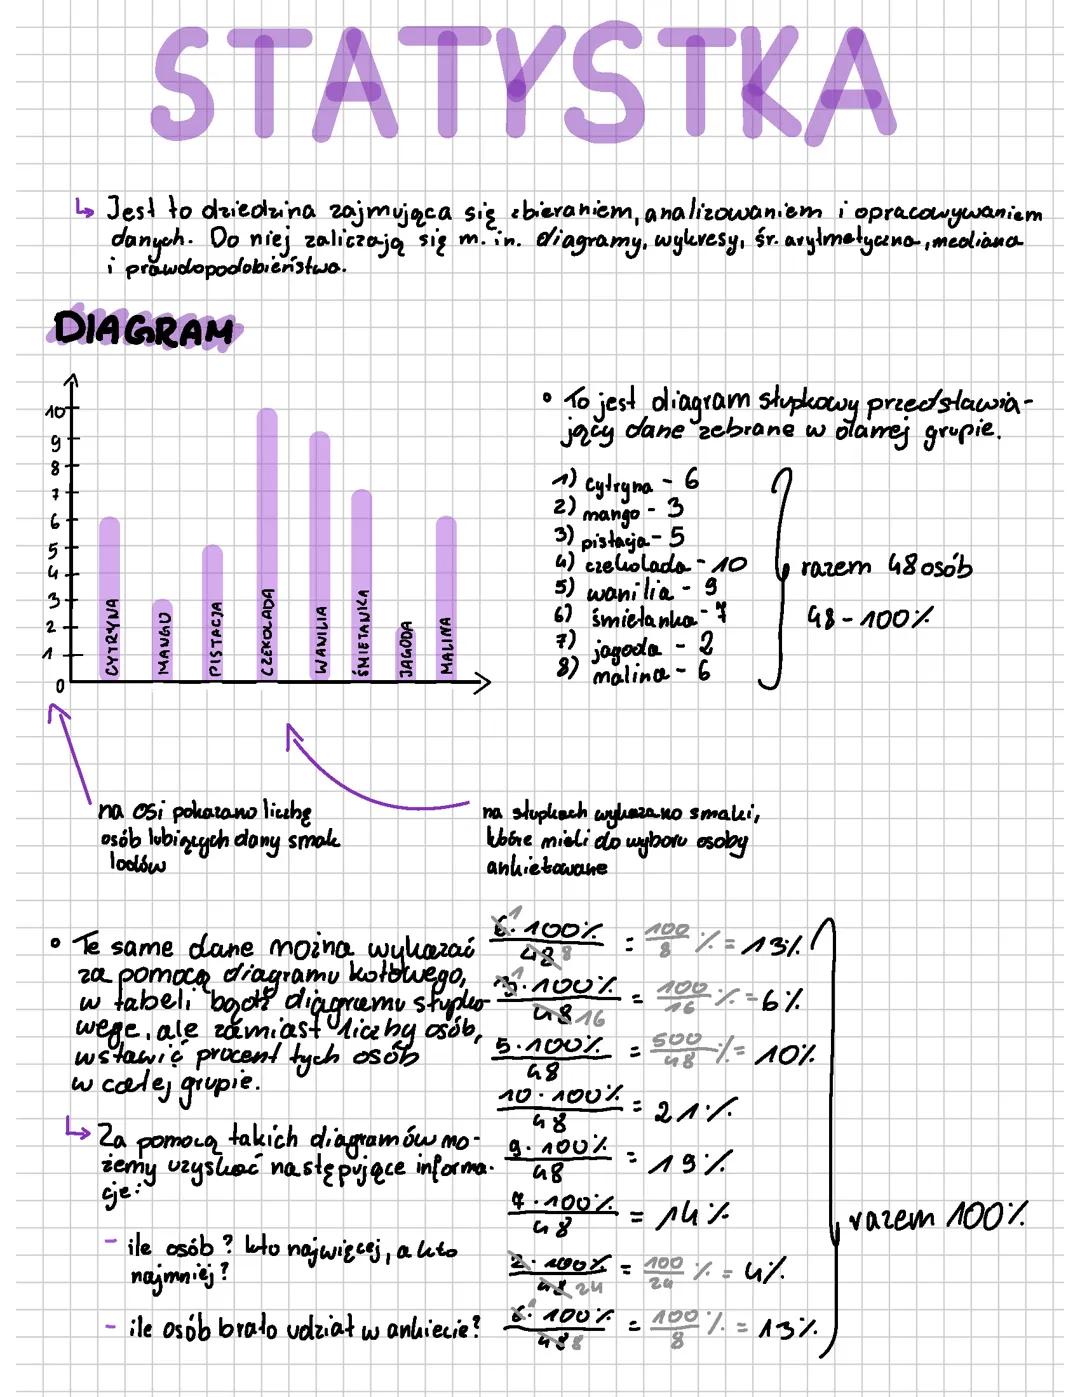 STATYSTKA
↳ Jest to dziedzina zajmująca się zbieraniem, analizowaniem i opracowywaniem
danych. Do niej zaliczają się m.in. diagramy, wykresy, śr. arytmetyczna, mediana
i prawdopodobieństwo.
DIAGRAM
10
9
8
7
6
5
4
3
2
1
0
CYTRYNA
MANGO
PISTACJA
CZEKOLADA
WANILIA
ŚMIETANKA
JAGODA
MALINA
• To jest diagram słupkowy przedstawia-
jący dane zebrane w danej grupie.
1) cytryna - 6
2) mango - 3
3) pistacja - 5
4) czekolada - 10
5) wanilia - 9
6) śmietanka - 7
7) jagoda - 2
8) malina - 6
razem 48 osób
48 - 100%
na osi pokazano liczbę
osób lubiących dany smak
lodów
na słupkach wykazano smaki,
które mieli do wyboru osoby
ankietowane
• Te same dane można wykazać
za pomocą diagramu kołowego,
w tabeli bądź diagramu słupko-
wego, ale zamiast liczby osób,
wstawić procent tych osób
w całej grupie.
↳ Za pomocą takich diagramów mo-
żemy uzyskać następujące informa-
cje:
- ile osób? kto najwięcej, a kto
najmniej?
- ile osób brało udział w ankiecie?
6·100% / 48 = 100/8 % = 13%
3·100% / 48 = 100/16 % = 6%
5·100% / 48 = 500/48 % = 10%
10·100% / 48 = 21%
9·100% / 48 = 19%
7·100% / 48 = 14%
2·100% / 48 = 100/24 % = 4%
6·100% / 48 = 100/8 % = 13%
razem 100%